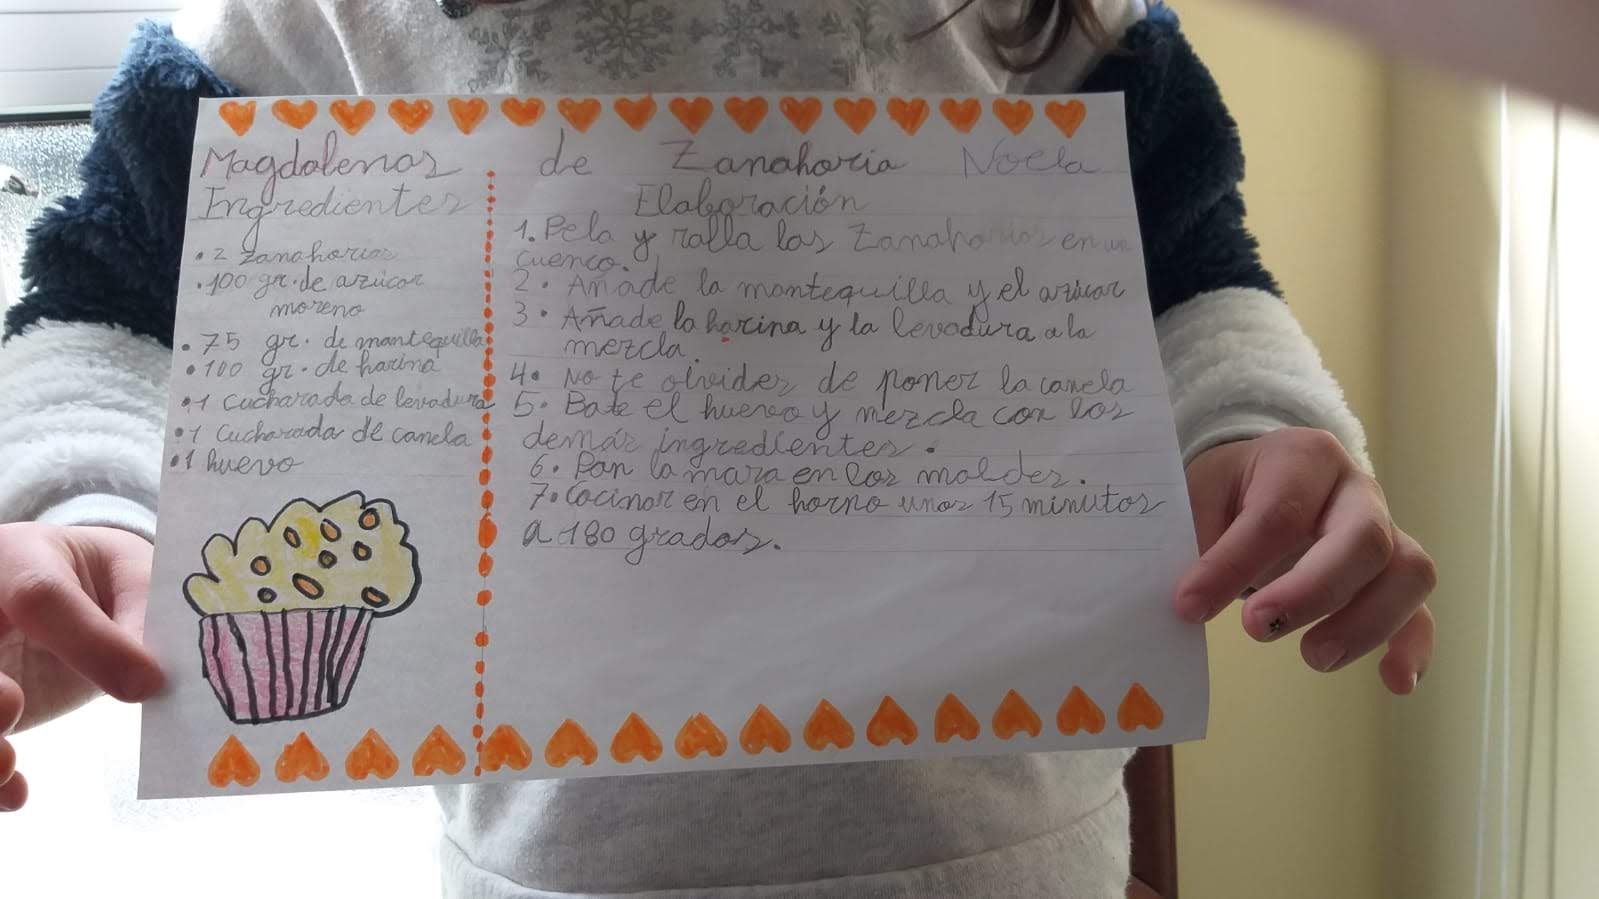 Magdalenas de Zanahoria Noela
Ingredientes
• 2 zanahorias
• 100 gr. de azúcar
moreno
• 75 gr. de mantequilla
• 100 gr. de harina
• 1 cucharada de levadura
• 1 cucharada de canela
• 1 huevo
Elaboración
1. Pela y ralla las zanahorias en un
cuenco.
2. Añade la mantequilla y el azúcar
3. Añade la harina y la levadura a la
mezcla.
4. No te olvides de poner la canela
5. Bate el huevo y mezcla con los
demás ingredientes.
6. Pon la masa en los moldes.
7. Cocinar en el horno unos 15 minutos
a 180 grados.